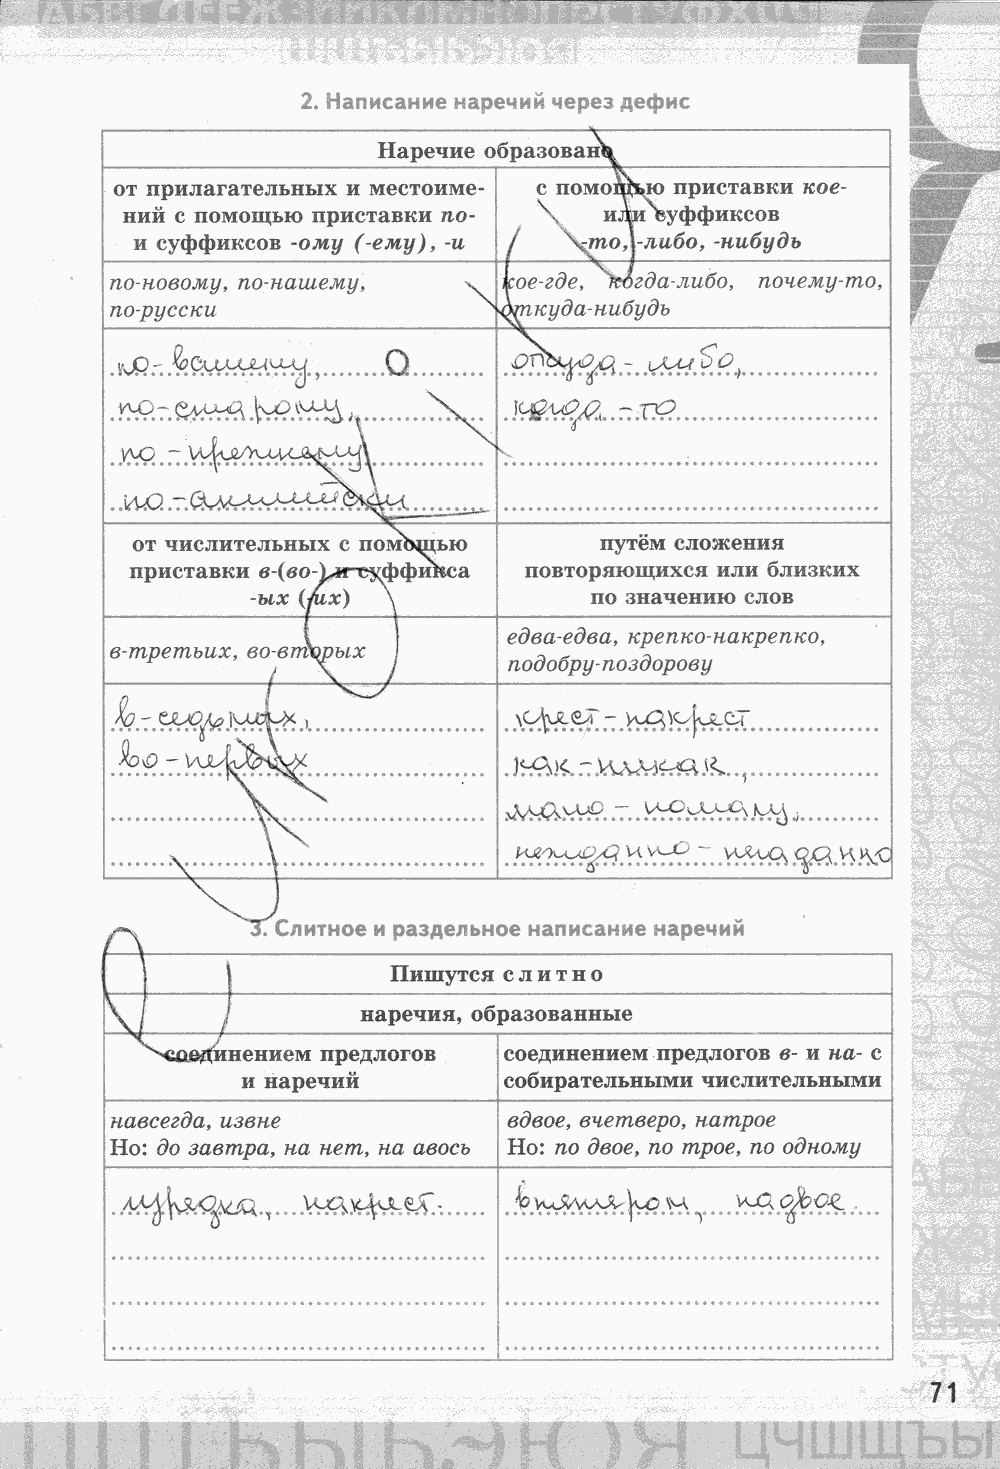 2. Написание наречий через дефис
Наречие образовано
от прилагательных и местоиме-
ний с помощью приставки по-
и суффиксов -ому (-ему), -и
с помощью приставки кое-
или суффиксов
-то, -либо, -нибудь
по-новому, по-нашему,
по-русски
кое-где, когда-либо, почему-то,
откуда-нибудь
по-вашему,
по-старому,
по-прежнему
по-английски
откуда-либо,
когда-то
от числительных с помощью
приставки в-(во-) и суффикса
-ых (-их)
путём сложения
повторяющихся или близких
по значению слов
в-третьих, во-вторых
едва-едва, крепко-накрепко,
подобру-поздорову
в-седьмых,
во-первых
крест-накрест
как-никак,
мало-помалу,
нежданно-негаданно
3. Слитное и раздельное написание наречий
Пишутся слитно
наречия, образованные
соединением предлогов
и наречий
соединением предлогов в- и на- с
собирательными числительными
навсегда, извне
Но: до завтра, на нет, на авось
вдвое, вчетверо, натрое
Но: по двое, по трое, по одному
изредка, накрест.
впятером, надвое.
71